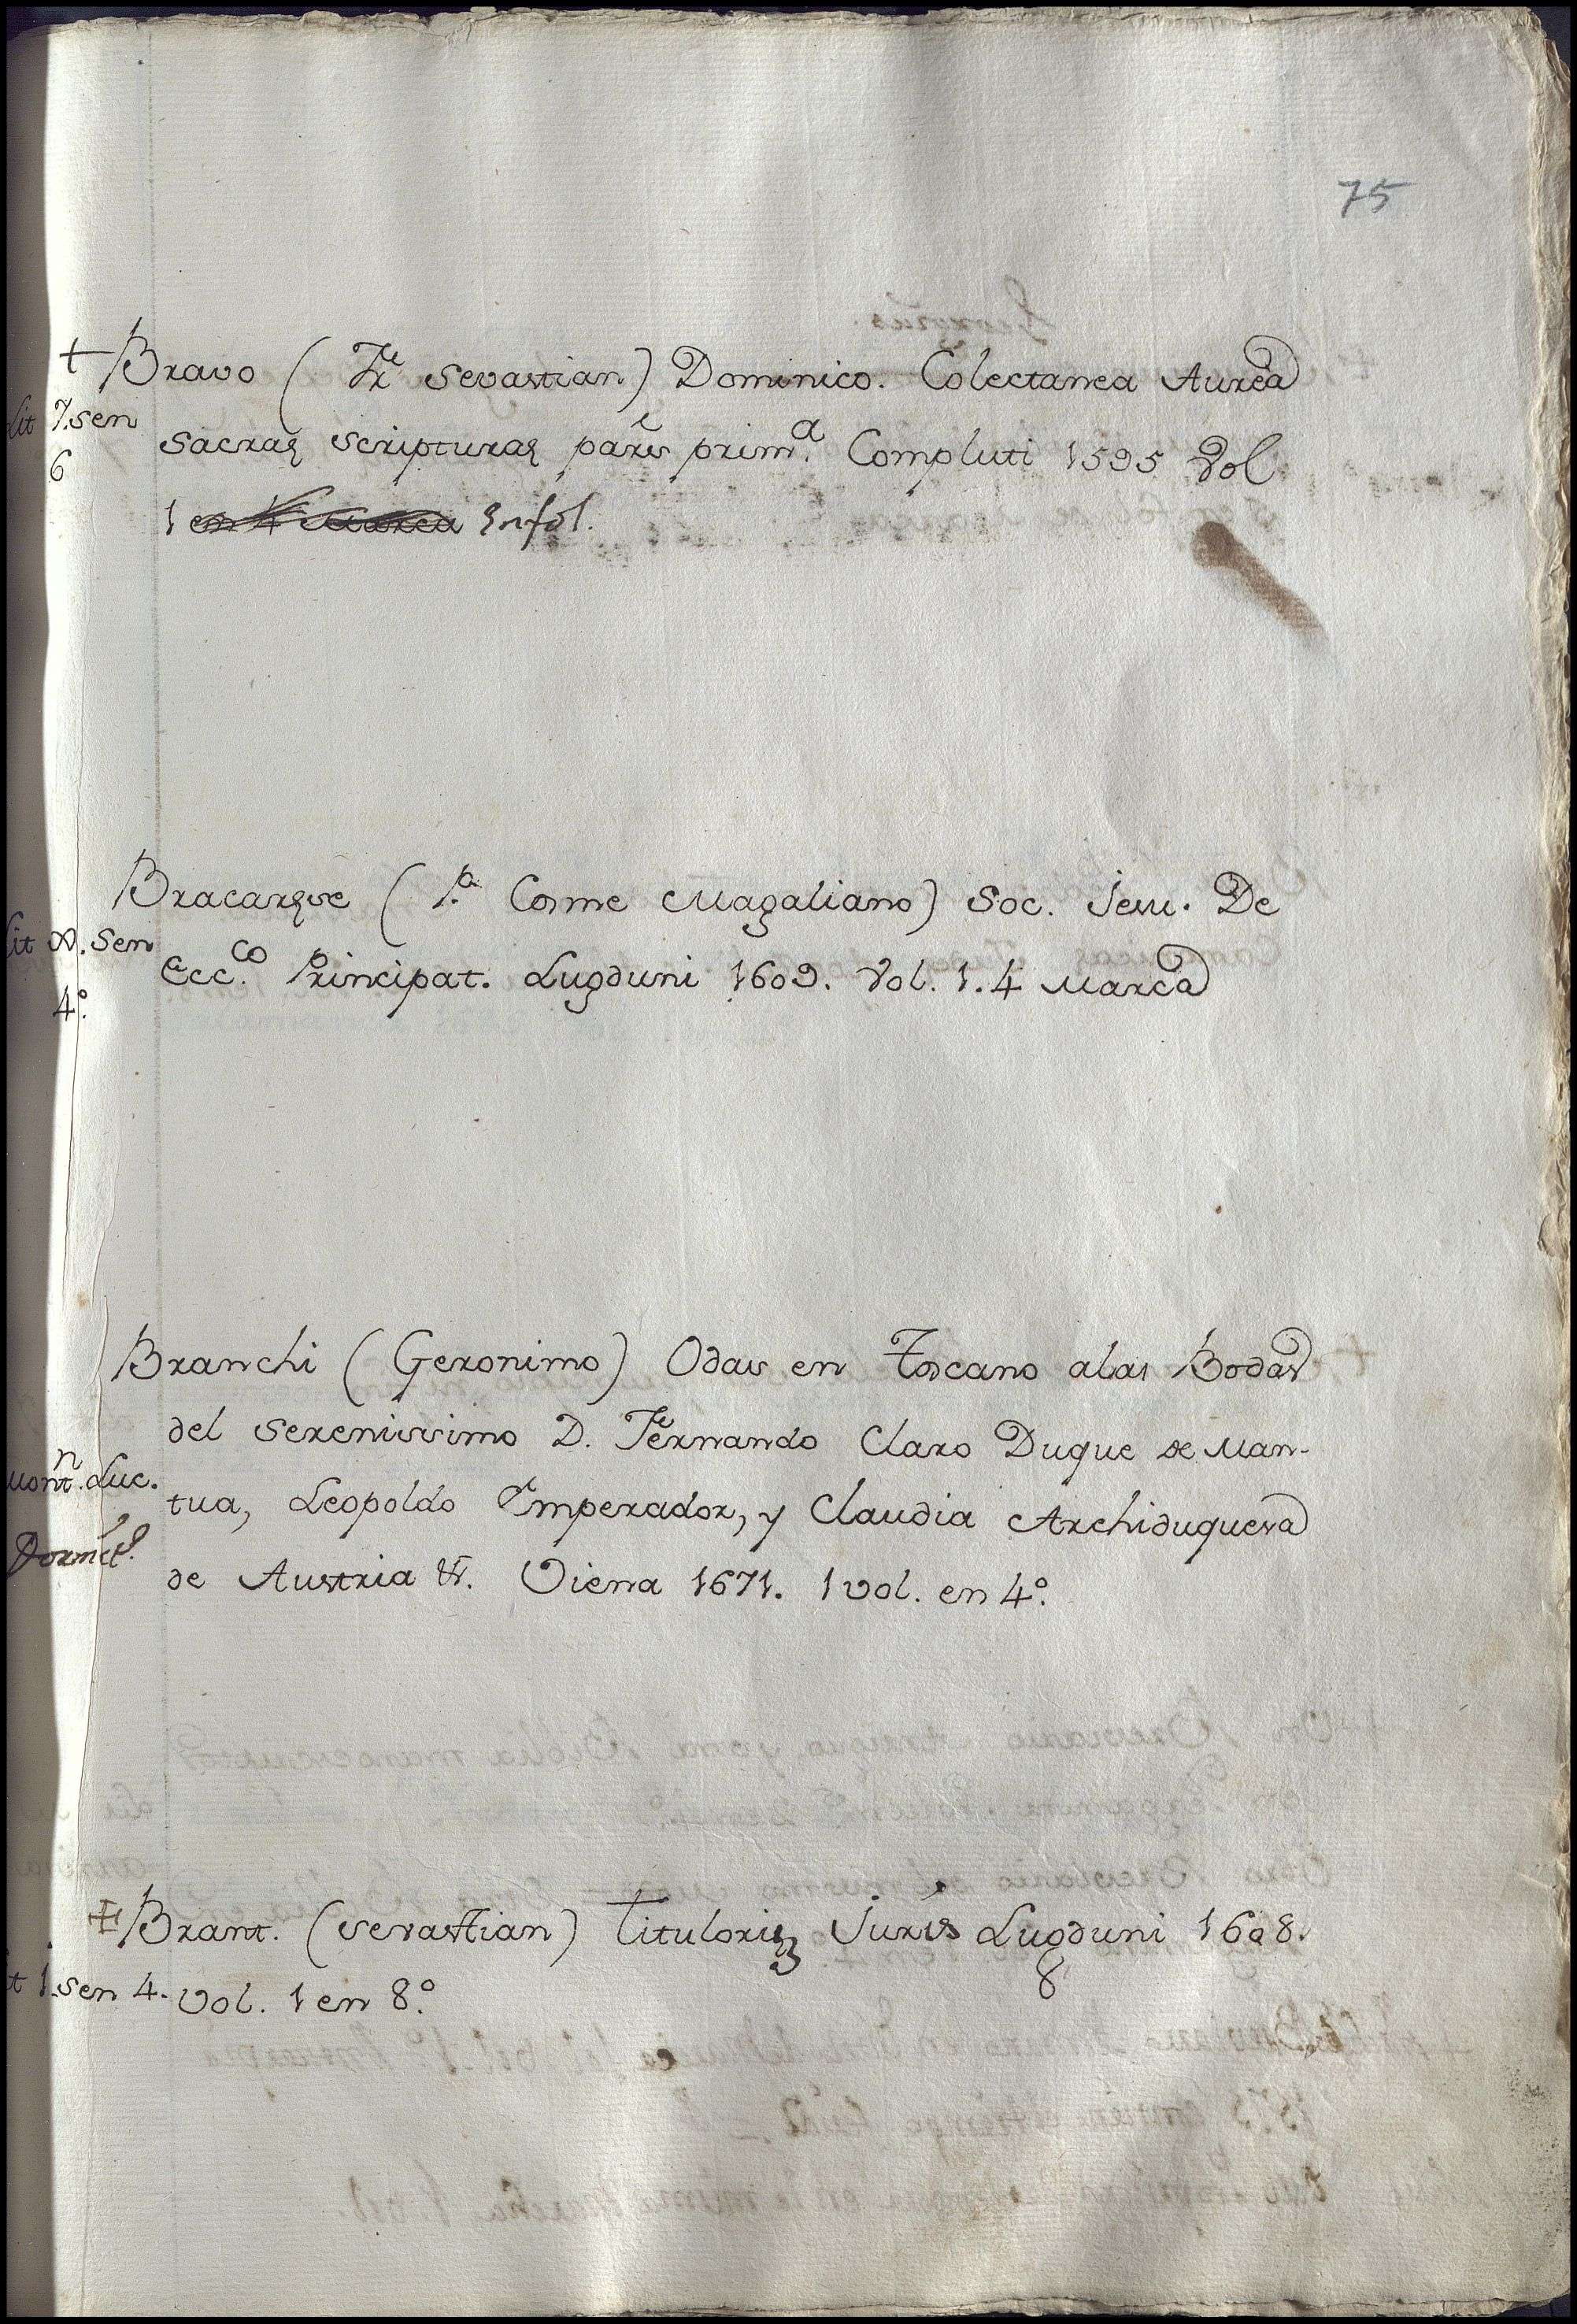 75
+ Bravo (Fr Sevastian) Dominico. Colectanea Aurea
Lit 7. sen
6
Sacraę Scripturaę pars prim.ª Compluti 1595 Vol
1 en 4 Marca En fol.
Bracaręse (P.ª Cosme Magaliano) Soc. Jesu. De
Lit X. sen
4º.
Ecc.co Principat. Lugduni 1609. Vol. 1. 4 Marca
Branchi (Geronimo) Odas en Toscano alas Bodas
del serenissimo D. Fernando Claro Duque de Man-
tua, Leopoldo Emperador, y Claudia Archiduquesa
de Austria &. Viena 1671. 1 vol. en 4º.
Brant. (Sevastian) Tituloruʒ Juris Lugduni 1608.
8
t 1. sen 4. Vol. 1 en 8.º